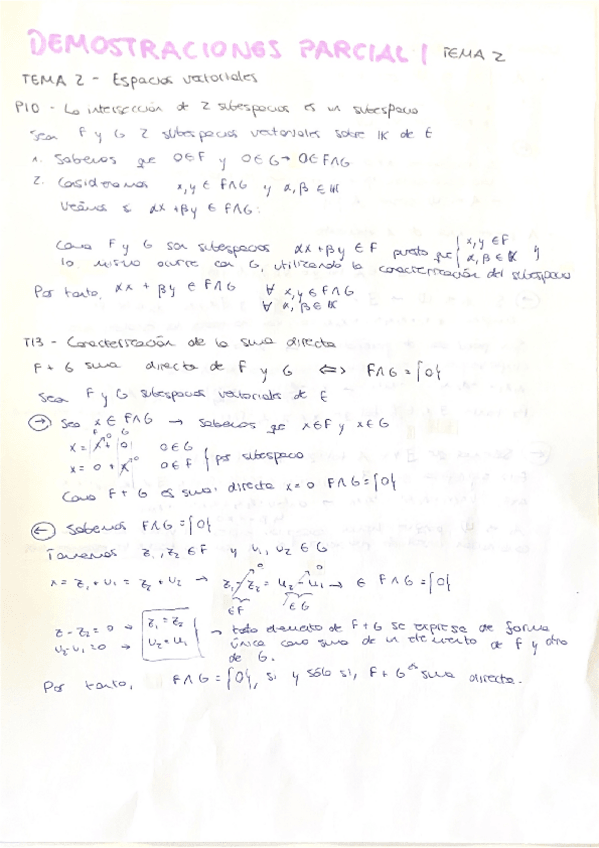 DEMOSTRACIONES PARCIAL 1 TEMA 2
TEMA 2 - Espacios vectoriales
P10 - La intersección de 2 subespacios es un subespacio
Sean F y G 2 subespacios vectoriales sobre IK de E
1. Sabemos que 0∈F y 0∈G → 0∈F∩G
2. Consideramos x,y ∈ F∩G y α,β ∈ IK
Veamos si αx + βy ∈ F∩G:
Como F y G son subespacios αx + βy ∈ F puesto que { x,y ∈ F
α,β ∈ IK y
lo mismo ocurre con G, utilizando la caracterización del subespacio
Por tanto, αx + βy ∈ F∩G ∀ x,y ∈ F∩G
∀ α,β ∈ IK
T13 - Caracterización de la suma directa
F + G suma directa de F y G ⇔ F∩G = {0}
Sean F y G subespacios vectoriales de E
→ Sea x ∈ F∩G → Sabemos que x∈F y x∈G
F G
x = x + 0 0∈G
x = 0 + x 0∈F } por subespacio
Como F + G es suma directa x=0 F∩G = {0}
← Sabemos F∩G = {0}
Tomamos z₁, z₂ ∈ F y u₁, u₂ ∈ G
x = z₁ + u₁ = z₂ + u₂ → z₁ - z₂ = u₂ - u₁ → ∈ F∩G = {0}
∈F ∈G
z - z₂ = 0 → z₁ = z₂
u₂ - u₁ = 0 → u₂ = u₁ → todo elemento de F + G se exprese de forma
única como suma de un elemento de F y otro
de G.
Por tanto, F∩G = {0}, si y sólo si, F + G es suma directa.